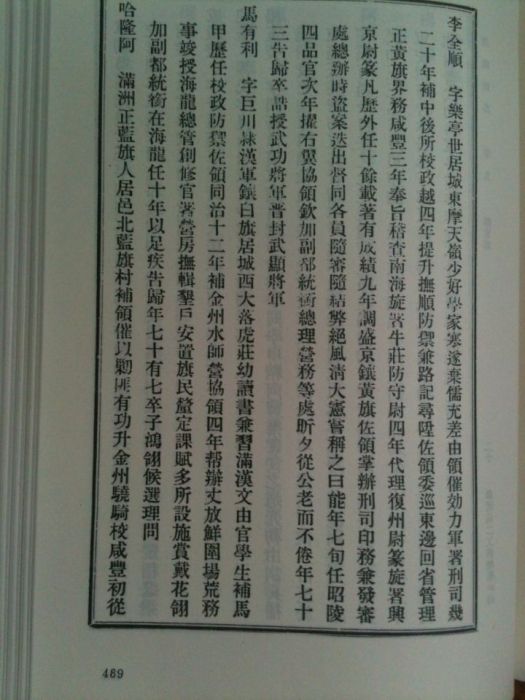 李全順　字樂亭世居城東摩天嶺少好學家寒遂棄儒充差由領催効力軍署刑司幾
二十年補中後所校政越四年提升撫順防禦兼路記尋陞佐領委巡東邊回省管理
正黃旗界務咸豐三年奉旨稽查南海旋署牛莊防守尉四年代理復州尉篆旋署興
京尉篆凡歷外任十餘載著有成績九年調盛京鑲黃旗佐領掌辦刑司印務兼發審
處總辦時盜案迭出督同各員隨審隨結弊絕風清大憲嘗稱之曰能年七旬任昭陵
四品官次年擢右翼協領欽加副都統銜總理營務等處昕夕從公老而不倦年七十
三告歸卒誥授武功將軍晉封武顯將軍
馬有利　字巨川隸漢軍鑲白旗居城西大落虎莊幼讀書兼習滿漢文由官學生補馬
甲歷任校政防禦佐領同治十二年補金州水師營協領四年帮辦丈放鮮圍場荒務
事竣授海龍總管創修官署營房撫輯墾戶安置旗民釐定課賦多所設施賞戴花翎
加副都統銜在海龍任十年以足疾告歸年七十有七卒子鴻翎候選理問
哈隆阿　滿洲正藍旗人居邑北藍旗村補領催以剿匪有功升金州驍騎校咸豐初從
469